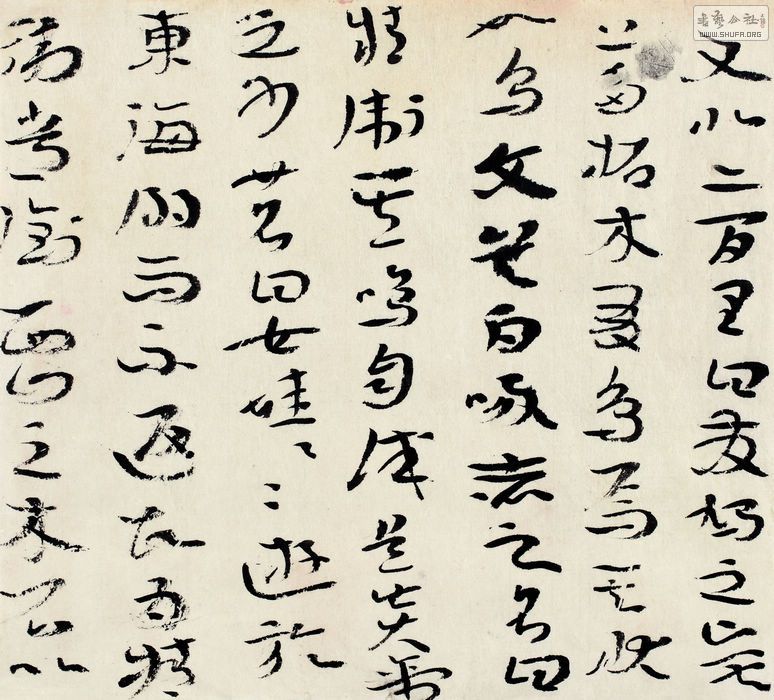 又北二百里曰發鳩之山其
上多柘木有鳥焉其狀
如烏文首白喙赤足名曰
精衛其鳴自詨是炎帝
之少女名曰女娃〻〻遊於
東海溺而不返故為精
衛常銜西山之木石以
书艺公社
WWW.SHUFA.ORG